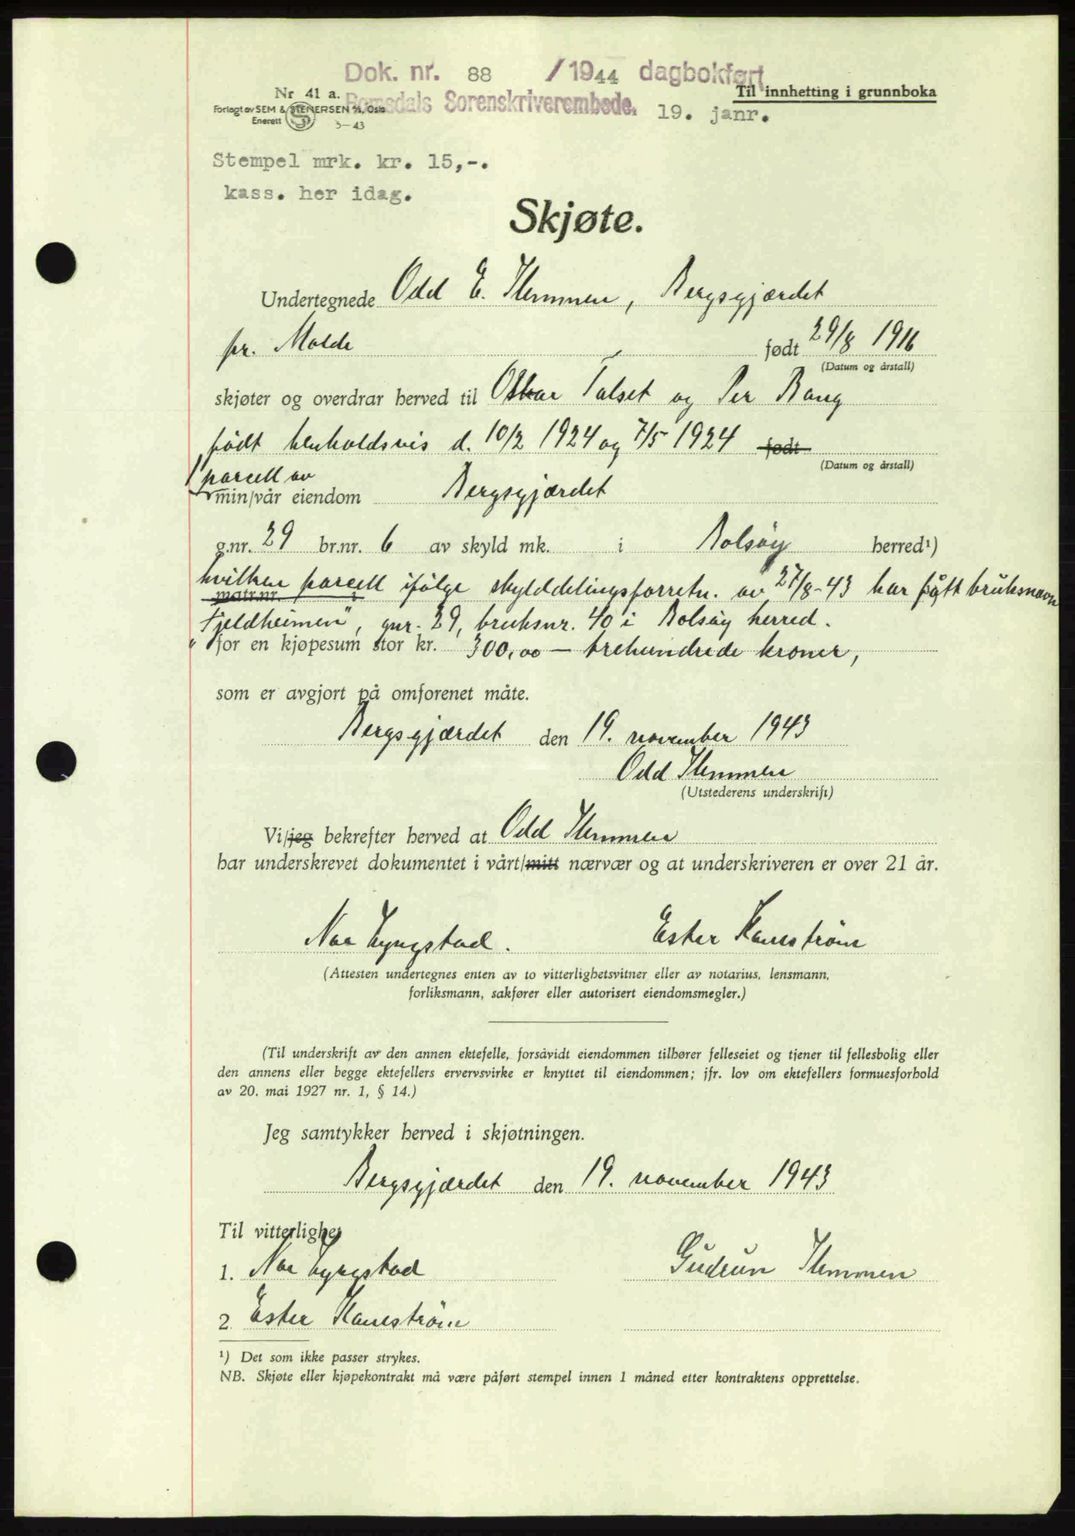 Dok. nr. 88 /1944 dagbokført
Nr 41 a. Til innhetting i grunnboka
Romsdals Sorenskriverembede. 19. janr.
Forlagt av SEM & STENERSEN A/S, Oslo
Enerett S 5-43
Stempel mrk. kr. 15,-.
kass. her idag.
Skjøte.
Undertegnede Odd E. Hemmen, Bergsgjærdet
pr. Molde født 29/8 1916
(Datum og årstall)
skjøter og overdrar herved til Oskar Talset og Per Bang
født henholdsvis d. 10/2 1924 og 7/5 1924 født
(Datum og årstall)
1 parcell av
min/vår eiendom Bergsgjærdet
g.nr. 29 br.nr. 6 av skyld mk. i Bolsøy herred¹)
hvilken parcell ifølge skylddelingsforretn. av 27/8-43 har fått bruksnavn
matr.nr. i
"Fjeldheimen", gnr. 29, bruksnr. 40 i Bolsøy herred.
for en kjøpesum stor kr. 300,00 — trehundrede kroner,
som er avgjort på omforenet måte.
Bergsgjærdet den 19. november 1943
Odd Hemmen
(Utstederens underskrift)
Vi/jeg bekrefter herved at Odd Hemmen
har underskrevet dokumentet i vårt/mitt nærvær og at underskriveren er over 21 år.
Lyngstad. Ester Hanestrøm
(Attesten undertegnes enten av to vitterlighetsvitner eller av notarius, lensmann,
forliksmann, sakfører eller autorisert eiendomsmegler.)
(Til underskrift av den annen ektefelle, forsåvidt eiendommen tilhører felleseiet og tjener til fellesbolig eller
den annens eller begge ektefellers ervervsvirke er knyttet til eiendommen; jfr. lov om ektefellers formuesforhold
av 20. mai 1927 nr. 1, § 14.)
Jeg samtykker herved i skjøtningen.
Bergsgjærdet den 19. november 1943
Til vitterlighet
1. Lyngstad Gudrun Hemmen
2. Ester Hanestrøm
¹) Det som ikke passer strykes.
NB. Skjøte eller kjøpekontrakt må være påført stempel innen 1 måned etter kontraktens opprettelse.